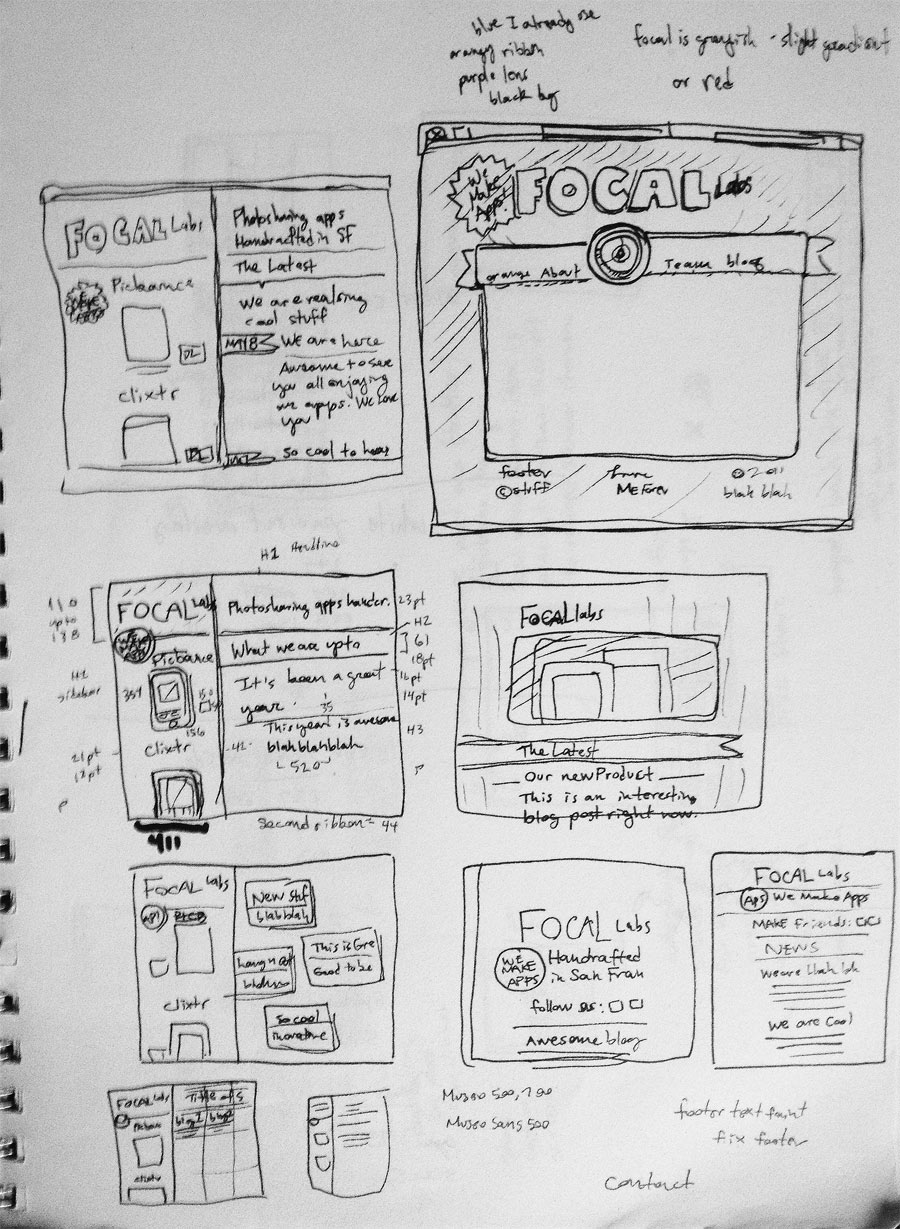 blue I already use
orangy ribbon
purple lens
black bg
focal is grayish - slight gradient
or red
We
Make
Apps!
FOCAL Labs
orange About
Team blog
footer
© stuff
ME Forev
© 2011
blah blah
FOCAL Labs
Picbounce
DL
clixtr
DL
Photosharing apps
Handcrafted in SF
The Latest
We are realsing
cool stuff
MAY 8
We are here
Awesome to see
you all enjoying
our apps. We love
you
So cool to hear
H1 Headline
110
upto
138
H1
sidebar
21pt
12pt
P
FOCAL Labs
WE MAKE APPS
Picbounce
354
150
156
clixtr
411
Photosharing apps hander.
What we are upto
It's been a great
year.
35
This year is awesome
42
blah blah blah
520
23pt
H2
61
18pt
16pt
14pt
H3
P
second ribbon = 44
FOCAL labs
The Latest
Our new Product
This is an interesting
blog post right now.
FOCAL Labs
API
clixtr
New stuf
blah blah
This is Gre
Good to be
So cool
FOCAL Labs
WE
MAKE
APPS
Handrafted
in San Fran
follow us:
Awesome blog
FOCAL Labs
APS
We Make Apps
MAKE friends:
NEWS
We are blah blah
We are Cool
FOCAL Labs
Picbounce
clixtr
Title of S
blog 1
blog 2
Museo 500, 700
Museo Sans 500
footer text faint
fix footer
contact